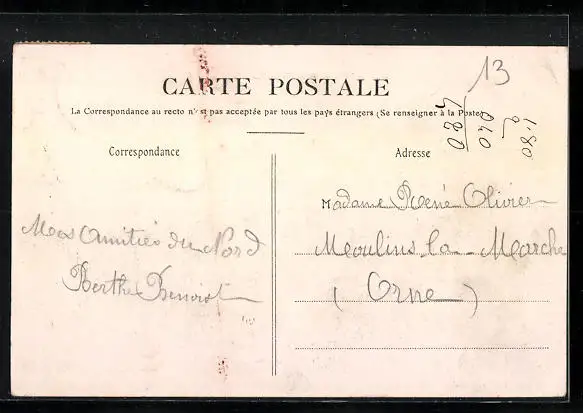 13
CARTE POSTALE
La Correspondance au recto n'est pas acceptée par tous les pays étrangers (Se renseigner à la Poste)
Correspondance
Adresse
Madame René Olivier
Moulins la Marche
(Orne)
Mes Amitiés du Nord
Berthe Benoist